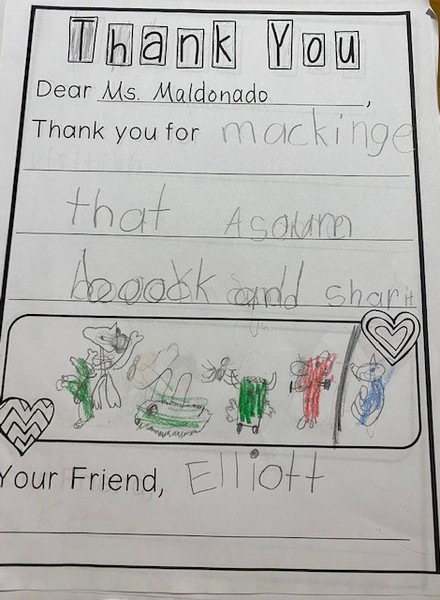 Thank You
Dear Ms. Maldonado,
Thank you for mackinge
that Asoume
boook and sharit
Your Friend, Elliott